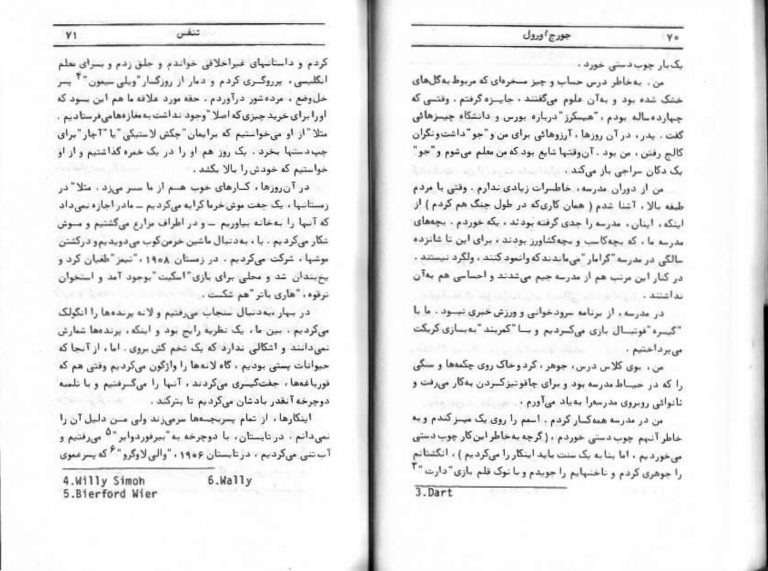 ۷۰
جورج اورول
یک‌بار چوب‌دستی خورد .
من . به‌خاطر درس حساب و چیز مسخره‌ای که مربوط به گل‌های
خشک شده بود و به‌آن علوم می‌گفتند ، جایزه گرفتم . وقتی که
چهارده ساله بودم ، "هیسکرز" درباره بورس و دانشگاه چیزهائی
گفت . پدر ، در آن روزها ، آرزوهائی برای من و "جو" داشت و نگران
کالج رفتن ، من بود . آن‌وقتها شایع بود که من معلم می‌شوم و "جو"
یک دکان سراجی باز می‌کند .
من از دوران مدرسه ، خاطرات زیادی ندارم . وقتی با مردم
طبقه بالا ، آشنا شدم ( همان کاری‌که در طول جنگ هم کردم ) از
اینکه ، اینان ، مدرسه را جدی گرفته بودند ، یکه خوردم . بچه‌های
مدرسه ما ، که بچه‌کاسب و بچه‌کشاورز بودند ، برای این تا شانزده
سالگی در مدرسه "گرامار" می‌ماندند که وانمود کنند ، ولگرد نیستند .
در کنار این مرتب هم از مدرسه جیم می‌شدند و احساسی هم به‌آن
نداشتند .
در مدرسه ، از برنامه سرودخوانی و ورزش خبری نبود . ما با
"گیره" فوتبال بازی می‌کردیم و با "کمربند" به‌بازی کریکت
می‌پرداختیم .
من ، بوی کلاس درس ، جوهر ، گرد و خاک روی چکمه‌ها و سنگی
را که در حیاط مدرسه بود و برای چاقو تیز کردن به‌کار می‌رفت و
نانوائی روبروی مدرسه را به‌یاد می‌آورم .
من در مدرسه همه‌کار کردم . اسمم را روی یک میز کندم و به
خاطر آنهم چوب‌دستی خوردم ، ( گرچه به‌خاطر این کار چوب دستی
می‌خوردیم ، اما بنا به یک سنت باید اینکار را می‌کردیم ) ، انگشتانم
را جوهری کردم و ناخنهایم را جویدم و با نوک قلم بازی "دارت" ۳
3.Dart
تنفس
۷۱
کردم و داستانهای غیراخلاقی خواندم و جلق زدم و برای معلم
انگلیسی ، پرروگری کردم و دمار از روزگار "ویلی سیمون" ۴ پسر
خل‌وضع ، مرده‌شور درآوردم . حقه مورد علاقه ما هم این بود که
او را برای خرید چیزی که اصلا" وجود نداشت به مغازه‌ها می‌فرستادیم .
مثلا" از او می‌خواستیم که برایمان "چکش لاستیکی" یا "آچار" برای
چپ‌دستها بخرد . یک روز هم او را در یک خمره گذاشتیم و از او
خواستیم که خودش را بالا بکشد .
در آن‌روزها ، کارهای خوب هم از ما سر می‌زد . مثلا" در
زمستانها ، یک جفت موش خرما کرایه می‌کردیم ــ مادر اجازه نمی‌داد
که آنها را به‌خانه بیاوریم ــ و در اطراف مزارع می‌گشتیم و موش
شکار می‌کردیم . یا ، به‌دنبال ماشین خرمن‌کوب می‌دویدیم و درکشتن
موشها ، شرکت می‌کردیم . در زمستان ۱۹۰۸ ، "تیمز" طغیان کرد و
یخ‌بندان شد و محلی برای بازی "اسکیت" بوجود آمد و استخوان
ترقوه ، "هاری باتر" هم شکست .
در بهار ، به‌دنبال سنجاب می‌رفتیم و لانه پرنده‌ها را انگولک
می‌کردیم . بین ما ، یک نظریه رایج بود و اینکه ، پرنده‌ها شمارش
نمی‌دانند و اشکالی ندارد که یک تخم کش بروی . اما ، از آنجا که
حیوانات پستی بودیم ، گاه لانه‌ها را واژگون می‌کردیم وقتی هم که
قورباغه‌ها ، جفت‌گیری می‌کردند ، آنها را می‌گرفتیم و با تلمبه
دوچرخه آنقدر بادشان می‌کردیم تا بترکند .
اینکارها ، از تمام پسربچه‌ها سر می‌زند ولی من دلیل آن را
نمی‌دانم . در تابستان ، با دوچرخه به "بیرفوردوایر" ۵ می‌رفتیم و
آب‌تنی می‌کردیم ، در تابستان ۱۹۰۶ ، "والی لاوگرو" ۶ که پسرعموی
4.Willy Simoh 6.Wally
5.Bierford Wier